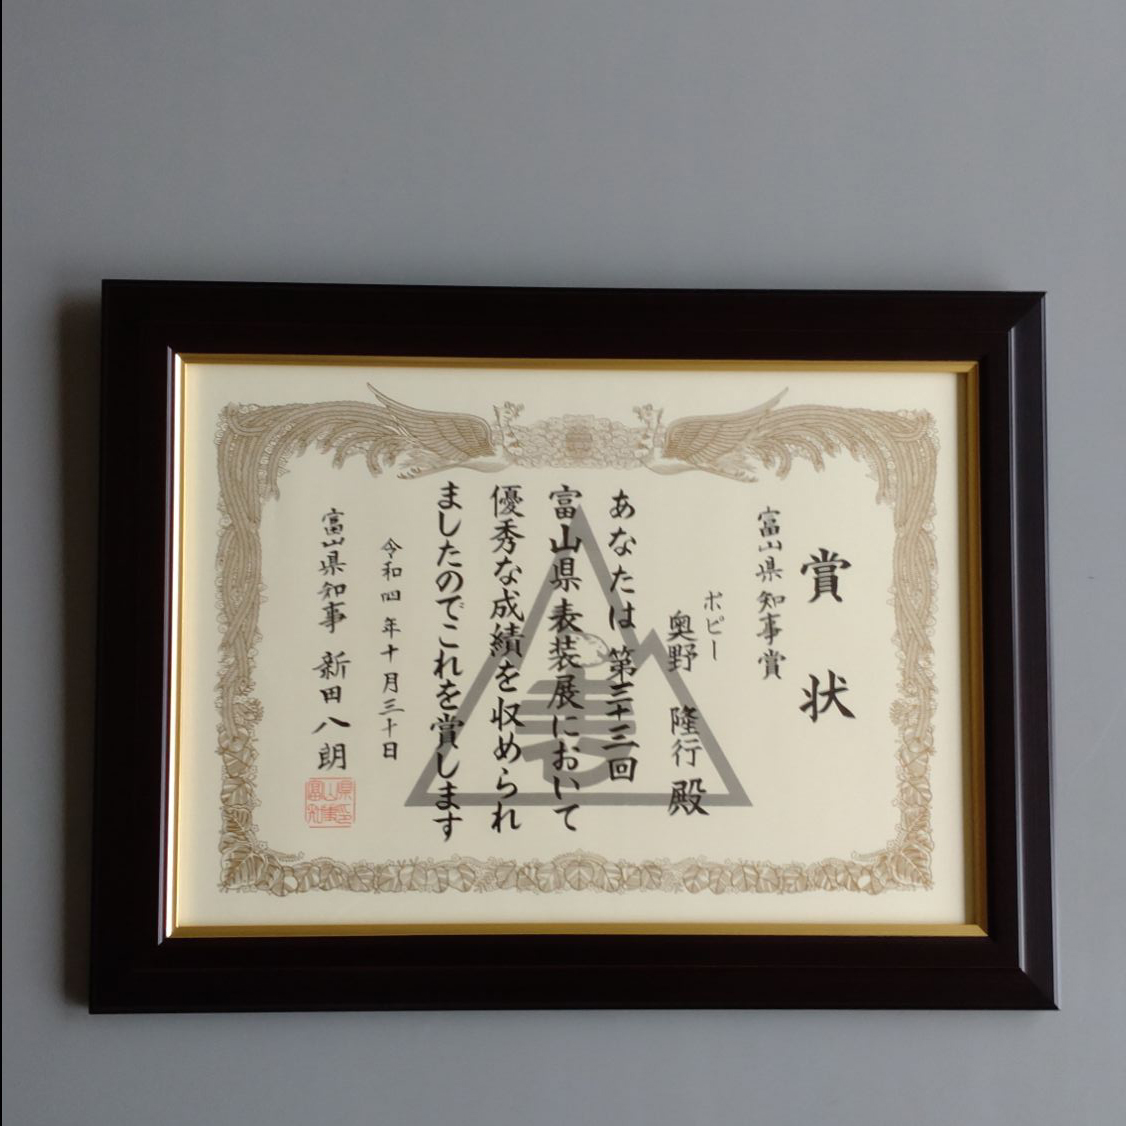 賞状
富山県知事賞
ポピー
奥野 隆行 殿
あなたは 第三十三回
富山県表装展において
優秀な成績を収められ
ましたのでこれを賞します
令和四年十月三十日
富山県知事 新田 八朗